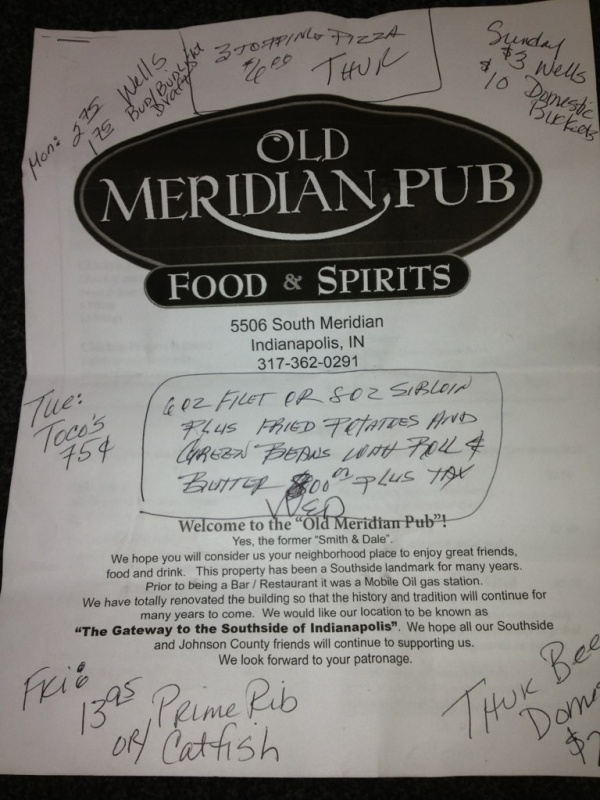 Mon: 2.75 Wells
1.75 Bud/Bud Light
Drafts
3 TOPPING PIZZA
$6.00 THUR
Sunday
$3 Wells
$10 Domestic
Buckets
OLD
MERIDIAN PUB
FOOD & SPIRITS
5506 South Meridian
Indianapolis, IN
317-362-0291
Tue:
Toco's
75¢
6 OZ FILET OR 8 OZ SIRLOIN
PLUS FRIED POTATOES AND
GREEN BEANS WITH ROLL &
BUTTER PLUS TAX
WED
Welcome to the "Old Meridian Pub"!
Yes, the former "Smith & Dale".
We hope you will consider us your neighborhood place to enjoy great friends,
food and drink. This property has been a Southside landmark for many years.
Prior to being a Bar / Restaurant it was a Mobile Oil gas station.
We have totally renovated the building so that the history and tradition will continue for
many years to come. We would like our location to be known as
"The Gateway to the Southside of Indianapolis". We hope all our Southside
and Johnson County friends will continue to supporting us.
We look forward to your patronage.
FRI:
13.95 Prime Rib
OR/ Catfish
THUR Bee
Dome
$